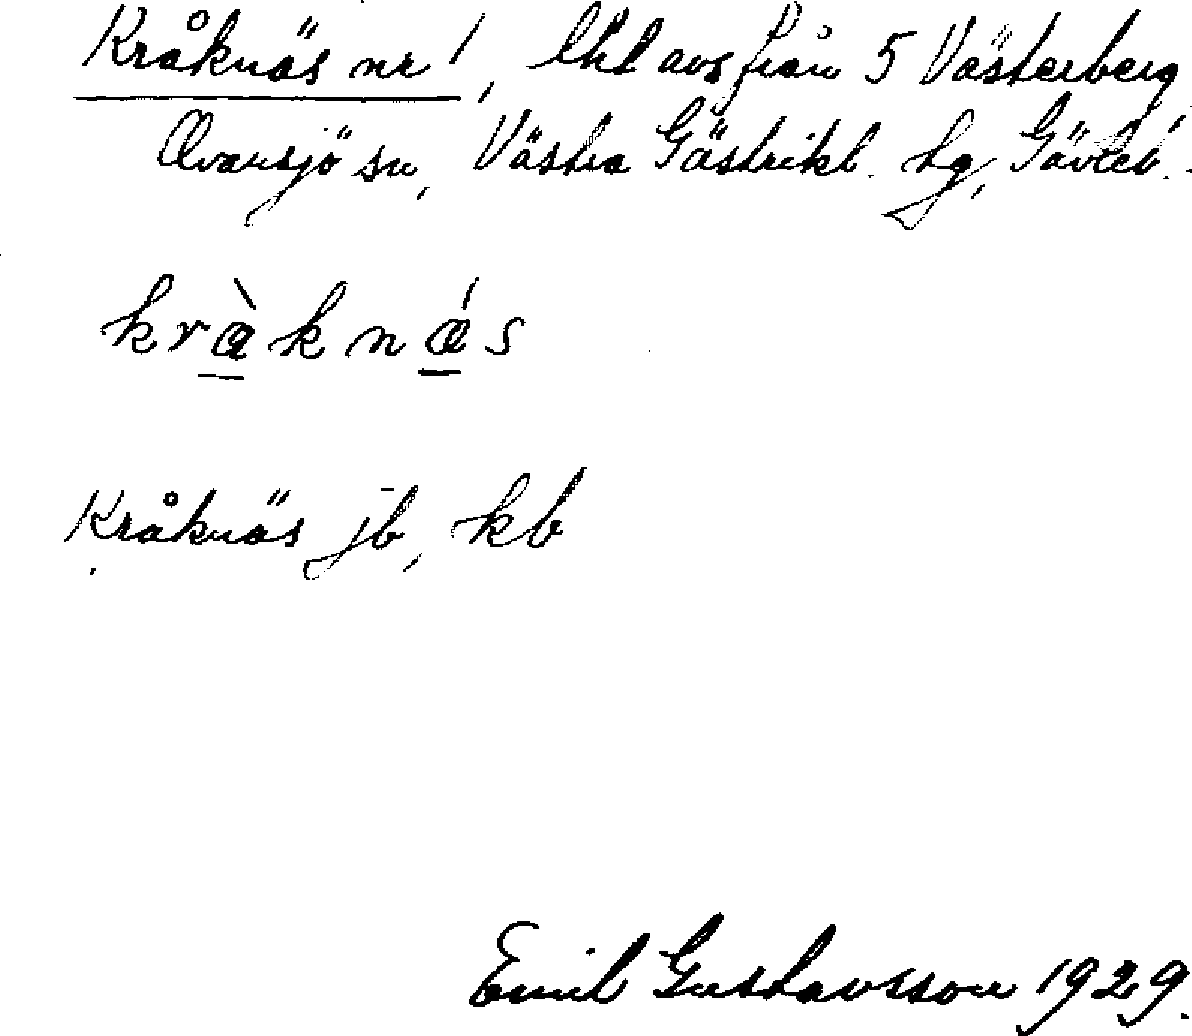 Kråknäs nr 1, lhl avs från 5 Västerberg,
Ovansjö sn, Västra Gästrikl. tg, Gävleb.
kràknǽs
Kråknäs jb, kb
Emil Gustavsson 1929.